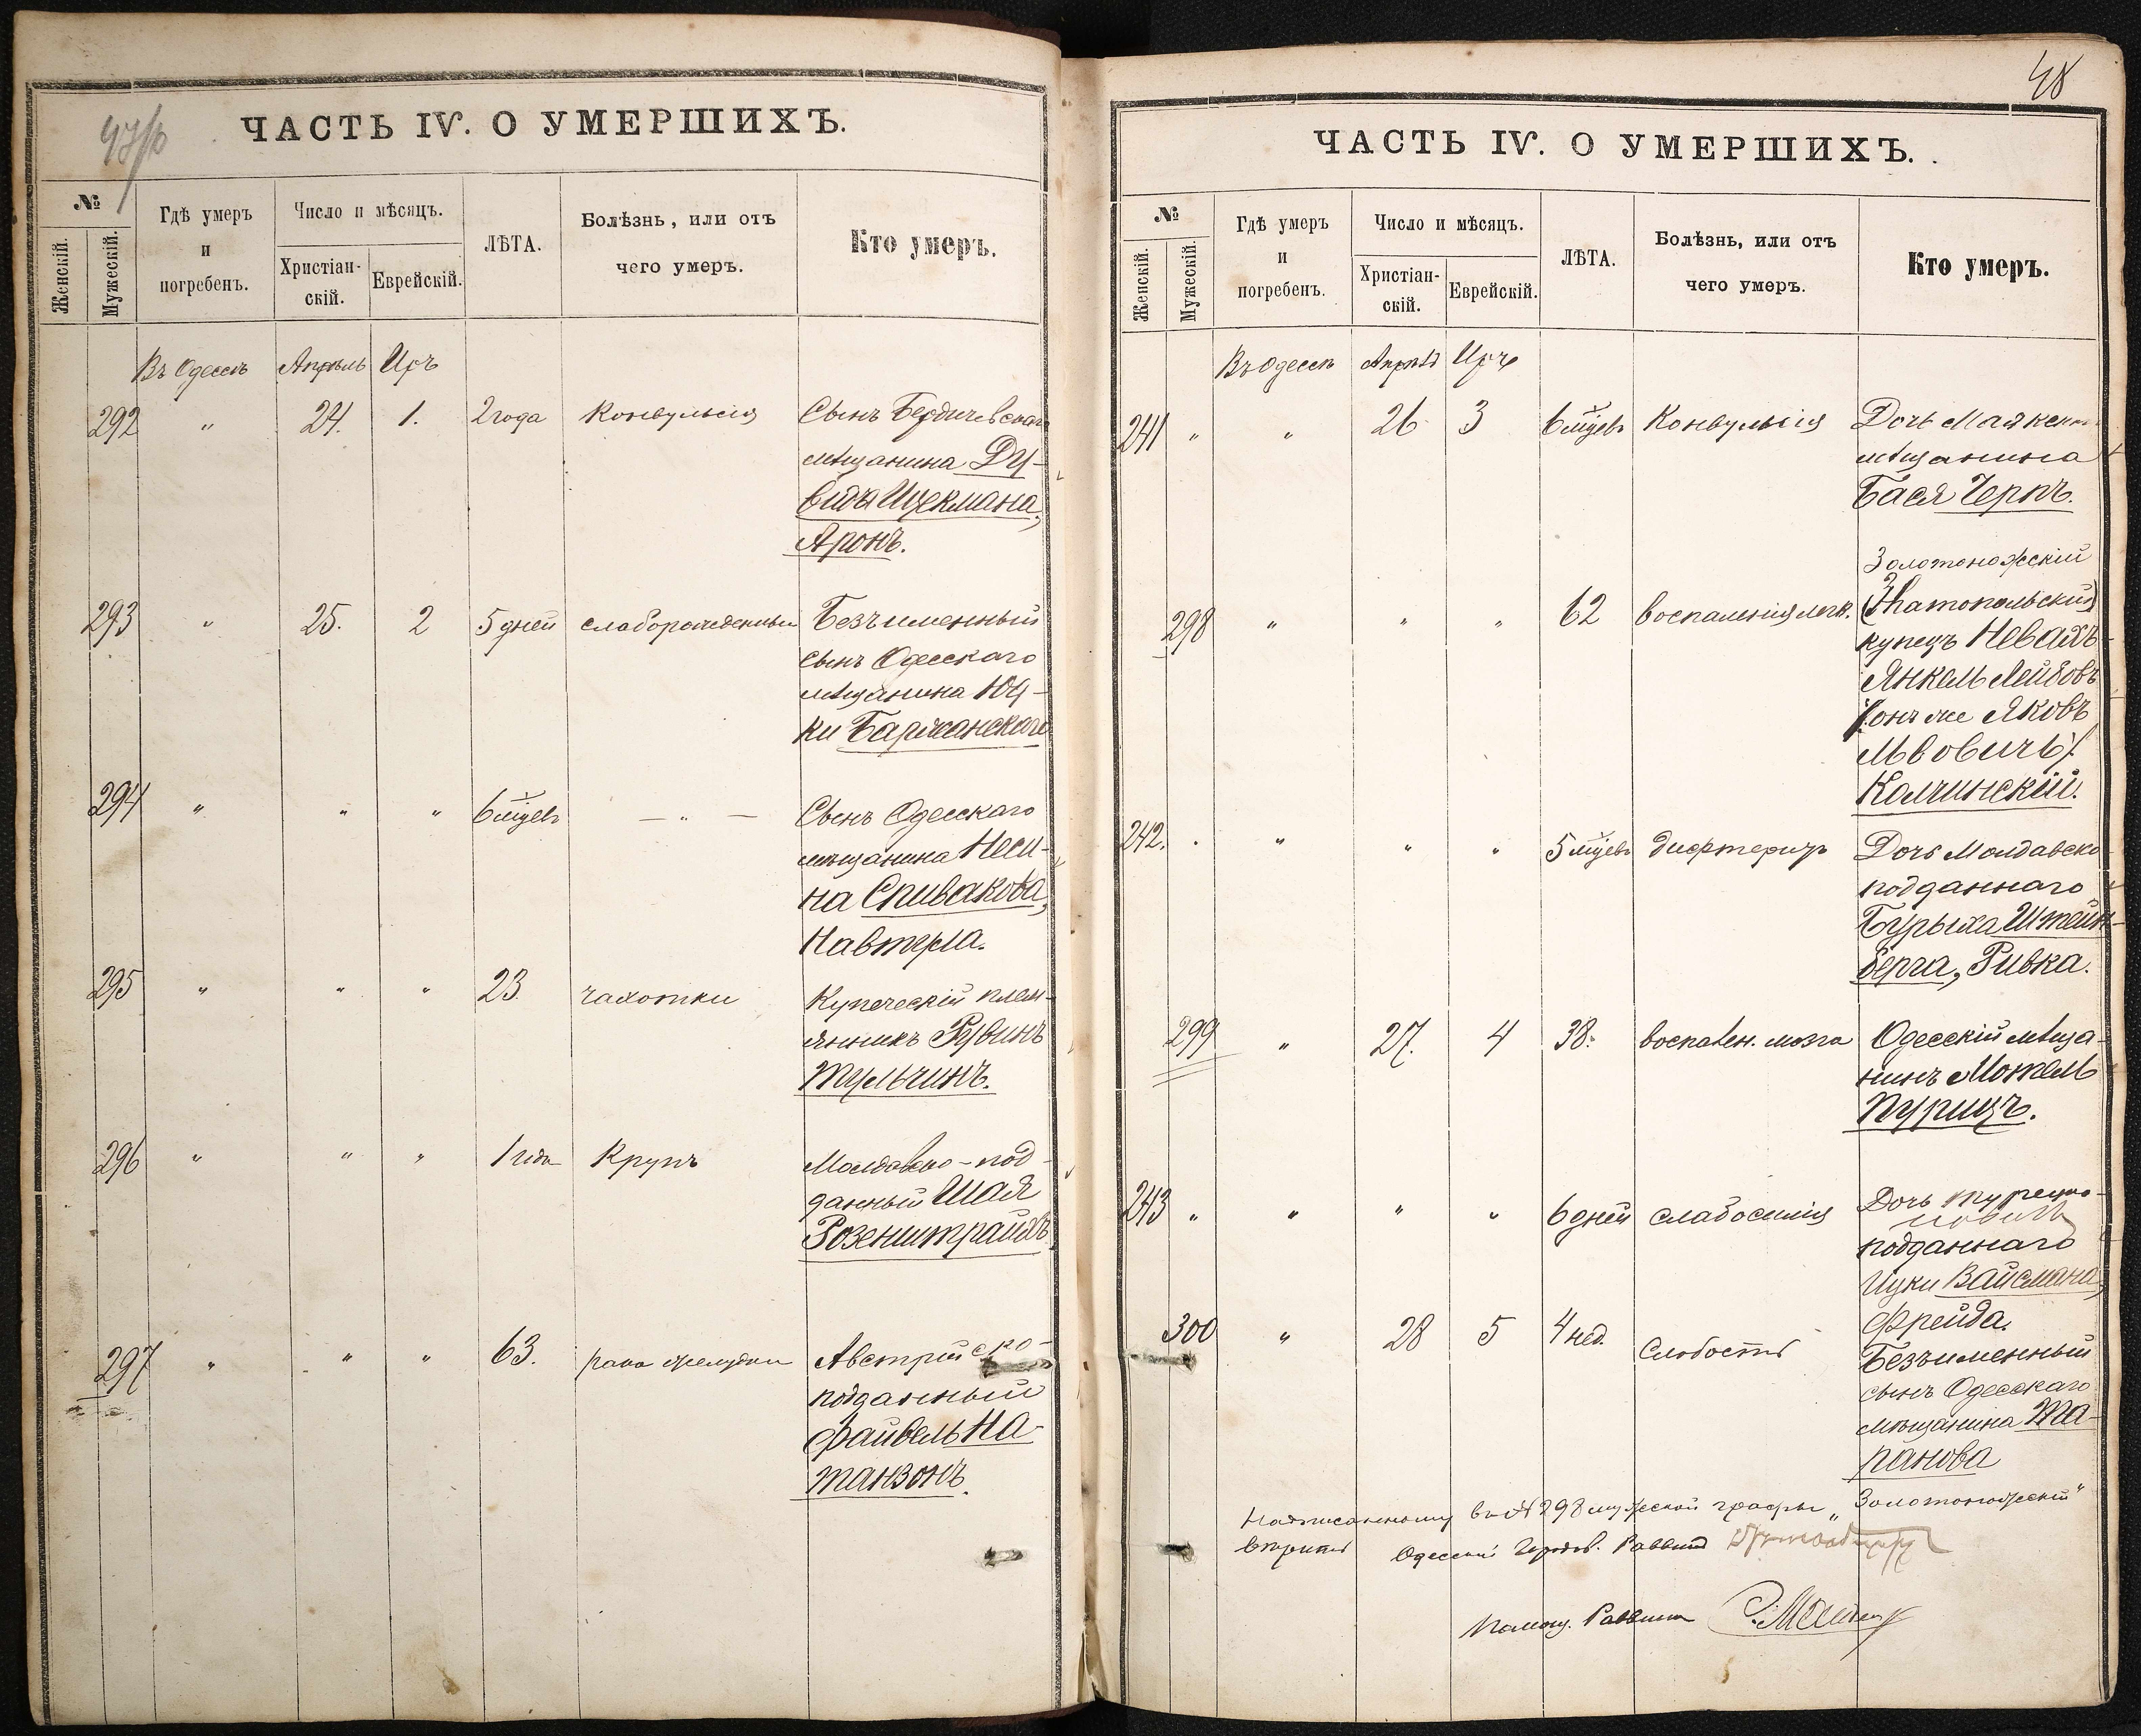 47/б
ЧАСТЬ IV. О УМЕРШИХЪ.
№
Женскій.
Мужескій.
Гдѣ умеръ
и
погребенъ.
Число и мѣсяцъ.
Христіан-
скій.
Еврейскій.
ЛѢТА.
Болѣзнь, или отъ
чего умеръ.
Кто умеръ.
Въ Одессѣ Апрѣль Иръ
292 " 24. 1. 2 года Конвульсія Сынъ Бердичевскаго
мѣщанина Ду-
вида Ицекмана,
Аронъ.
293 " 25. 2 5 дней слаборожденный Безъименный
сынъ Одесскаго
мѣщанина Юд-
ки Баржанскаго
294 " " " 6 мѣсяцевъ — " — Сынъ Одесскаго
мѣщанина Неси-
на Спивакова,
Навтула.
295 " " " 23. чахотки Купеческій плем-
янникъ Рувинъ
Тульчинъ.
296 " " " 1 года Крупъ Молдавско-под-
данный Шая
Розенштрайхъ
297 " " " 63. рака желудка Австрійско-
подданный
Файвель На-
танзонъ.
48
ЧАСТЬ IV. О УМЕРШИХЪ.
№
Женскій.
Мужескій.
Гдѣ умеръ
и
погребенъ.
Число и мѣсяцъ.
Христіан-
скій.
Еврейскій.
ЛѢТА.
Болѣзнь, или отъ
чего умеръ.
Кто умеръ.
Въ Одессѣ Апрѣль Иръ
241 " " 26 3 6 мѣсяцевъ Конвульсія Дочь Маякскаго
мѣщанина
Бася Черпъ.
Золотоножскій
298 " " " 62 воспаленія легк. (Златопольскій)
купецъ Невахъ-
Янкель Лейбовъ
/:онъ же Яковъ
Львовичъ:/
Калчинскій.
242. " " " " 5 мѣсяцевъ дифтеритъ Дочь Молдавско-
подданнаго
Бурыха Штейн-
берга, Ривка.
299 " 27. 4 38. воспален. мозга Одесскій мѣща-
нинъ Мотель
Пурицъ.
243 " " " " 6 дней слабосилія Дочь турецко-
подданнаго
Ицки Вайсмана,
Фрейда.
300 " 28 5 4 нед. Слабость Безъименный
сынъ Одесскаго
мѣщанина Та-
панова
Надписанному въ № 298 мужской графы „Золотоножскій"
вѣрить Одесскій Городов. Раввинъ
Помощ. Раввина